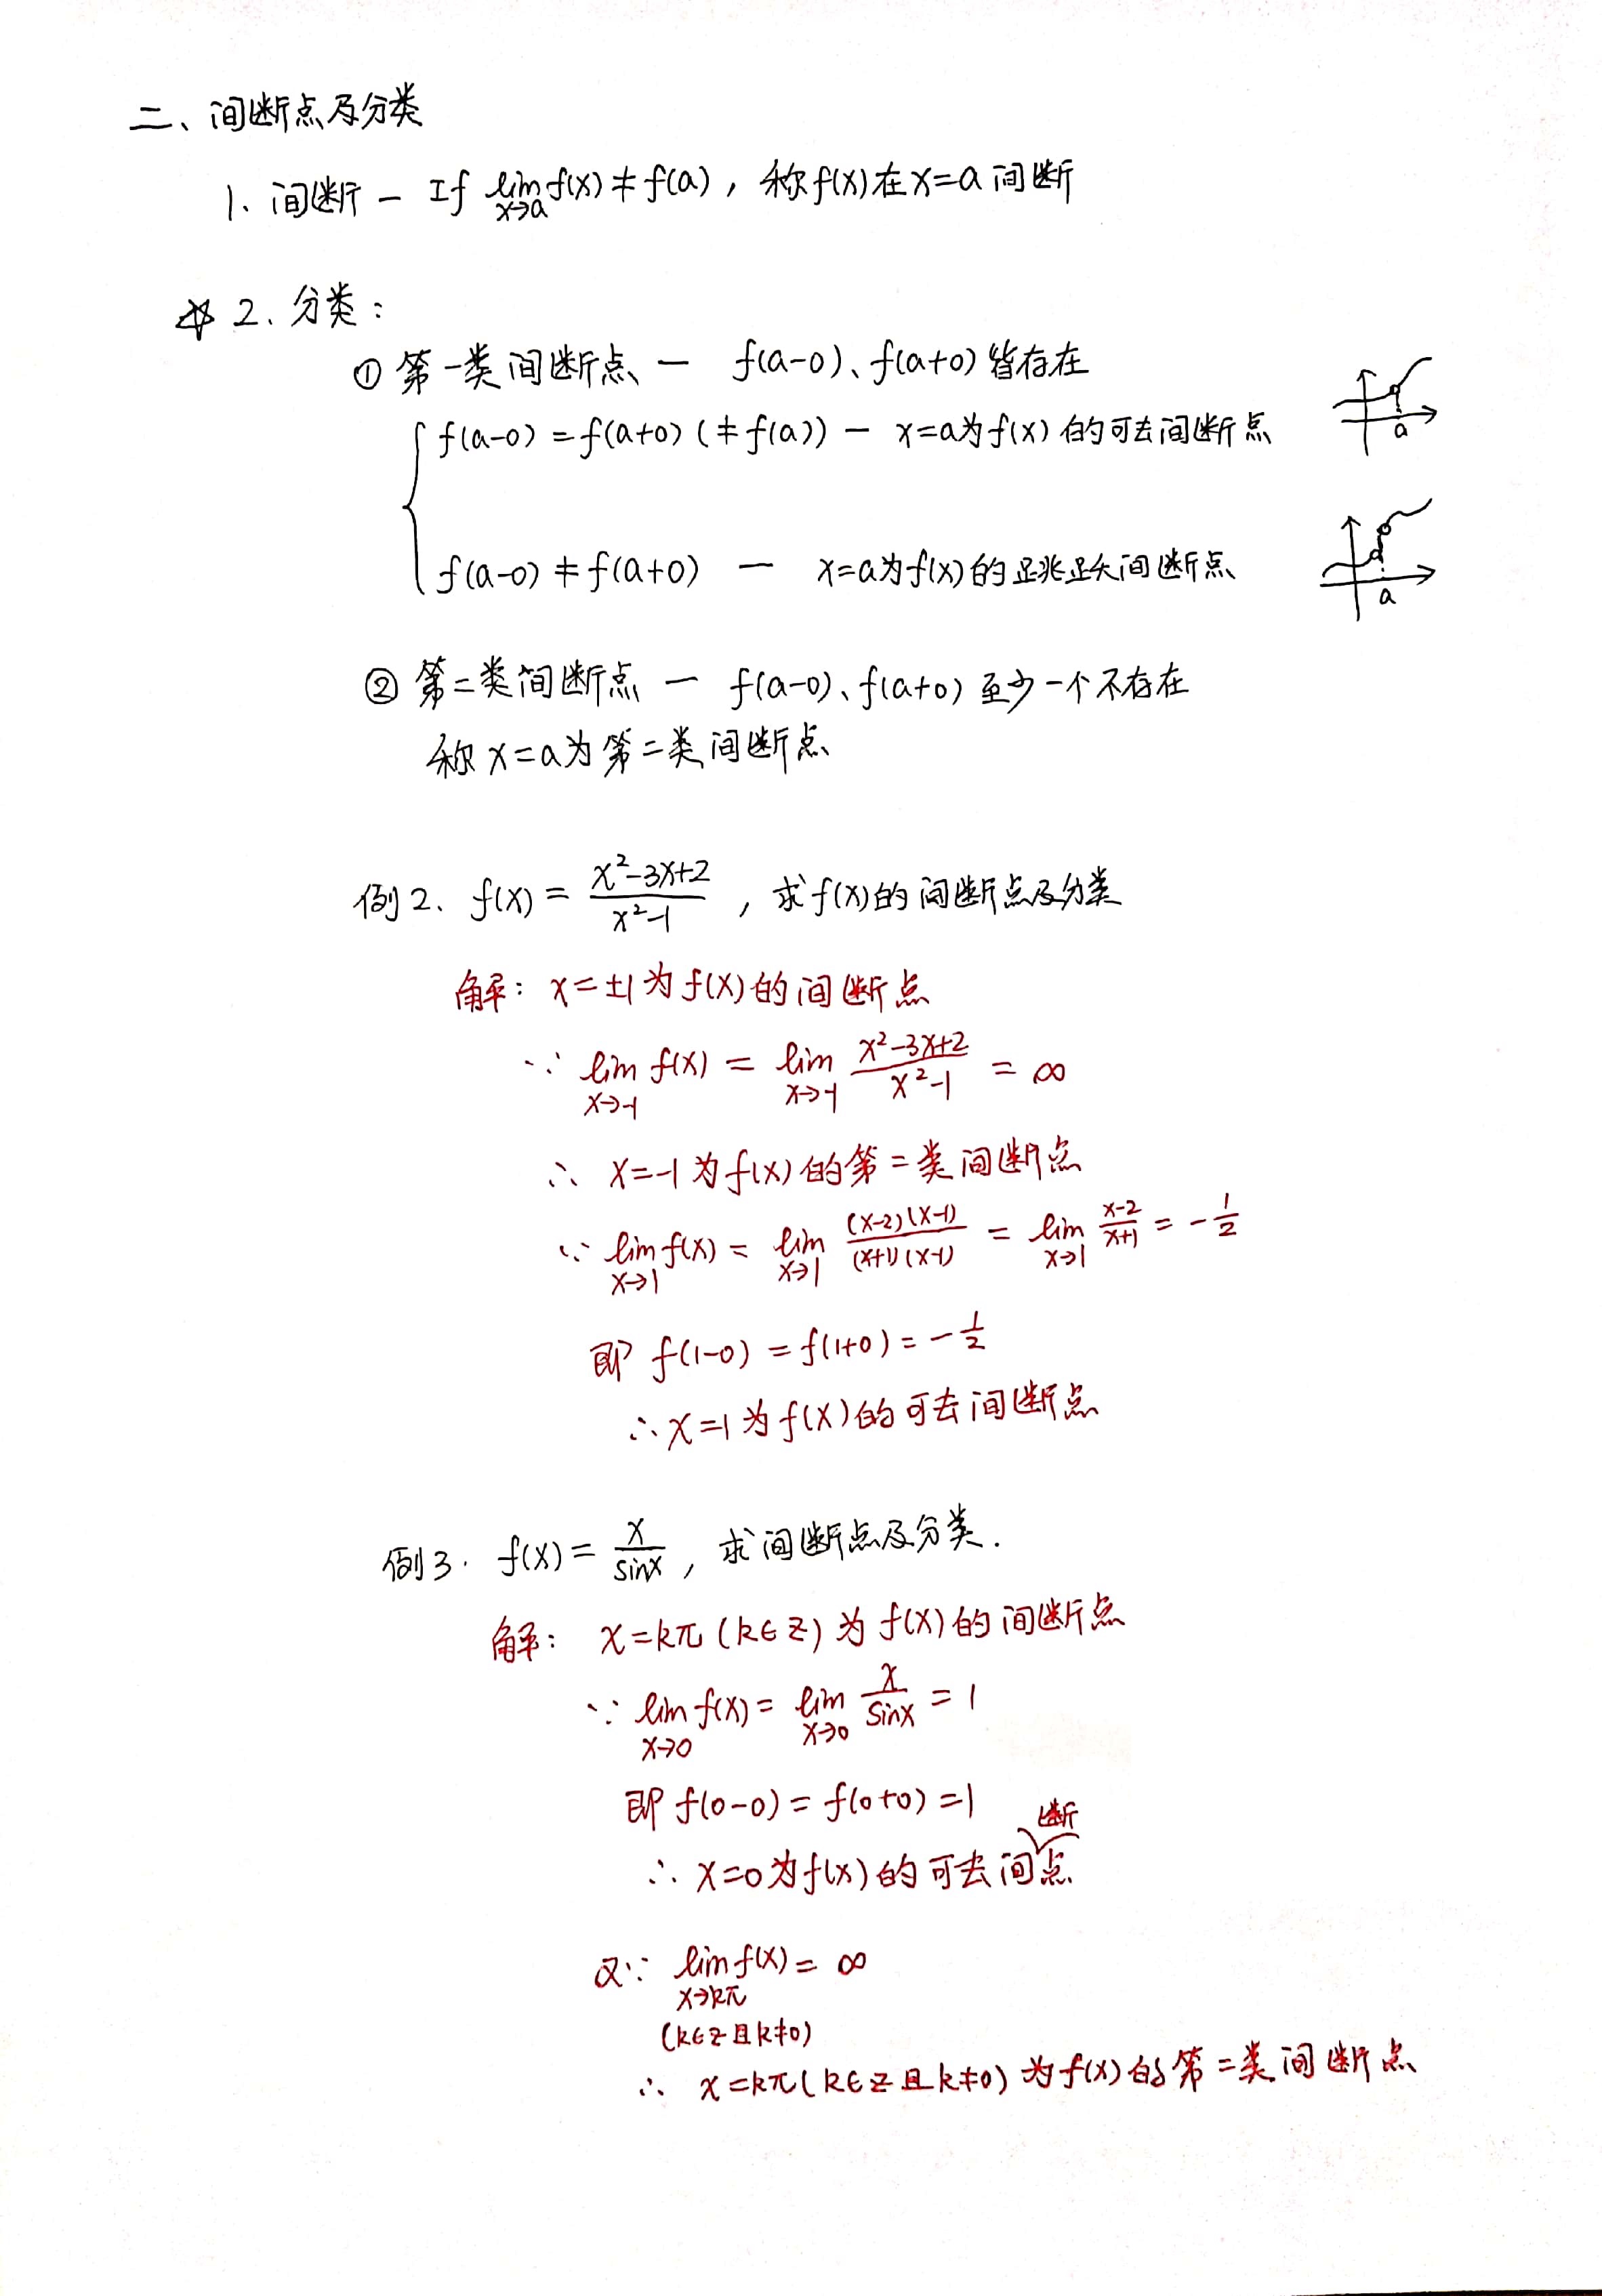 二、间断点及分类
1、间断 — If lim f(x) ≠ f(a)，称f(x)在x=a间断
x→a
☆ 2、分类：
① 第一类间断点 — f(a-0)、f(a+0)皆存在
f(a-0) = f(a+0) (≠ f(a)) — x=a为f(x)的可去间断点
a
f(a-0) ≠ f(a+0) — x=a为f(x)的跳跃间断点
a
② 第二类间断点 — f(a-0)、f(a+0)至少一个不存在
称x=a为第二类间断点
例2、f(x) = (x²-3x+2)/(x²-1)，求f(x)的间断点及分类
解：x=±1为f(x)的间断点
∵ lim f(x) = lim (x²-3x+2)/(x²-1) = ∞
x→-1 x→-1
∴ x=-1为f(x)的第二类间断点
∵ lim f(x) = lim (x-2)(x-1)/(x+1)(x-1) = lim (x-2)/(x+1) = -1/2
x→1 x→1 x→1
即 f(1-0) = f(1+0) = -1/2
∴ x=1为f(x)的可去间断点
例3. f(x) = x/sinx，求间断点及分类.
解：x=kπ (k∈Z) 为f(x)的间断点
∵ lim f(x) = lim x/sinx = 1
x→0 x→0
即 f(0-0) = f(0+0) = 1
∴ x=0为f(x)的可去间断点
又∵ lim f(x) = ∞
x→kπ
(k∈Z且k≠0)
∴ x=kπ(k∈Z且k≠0)为f(x)的第二类间断点